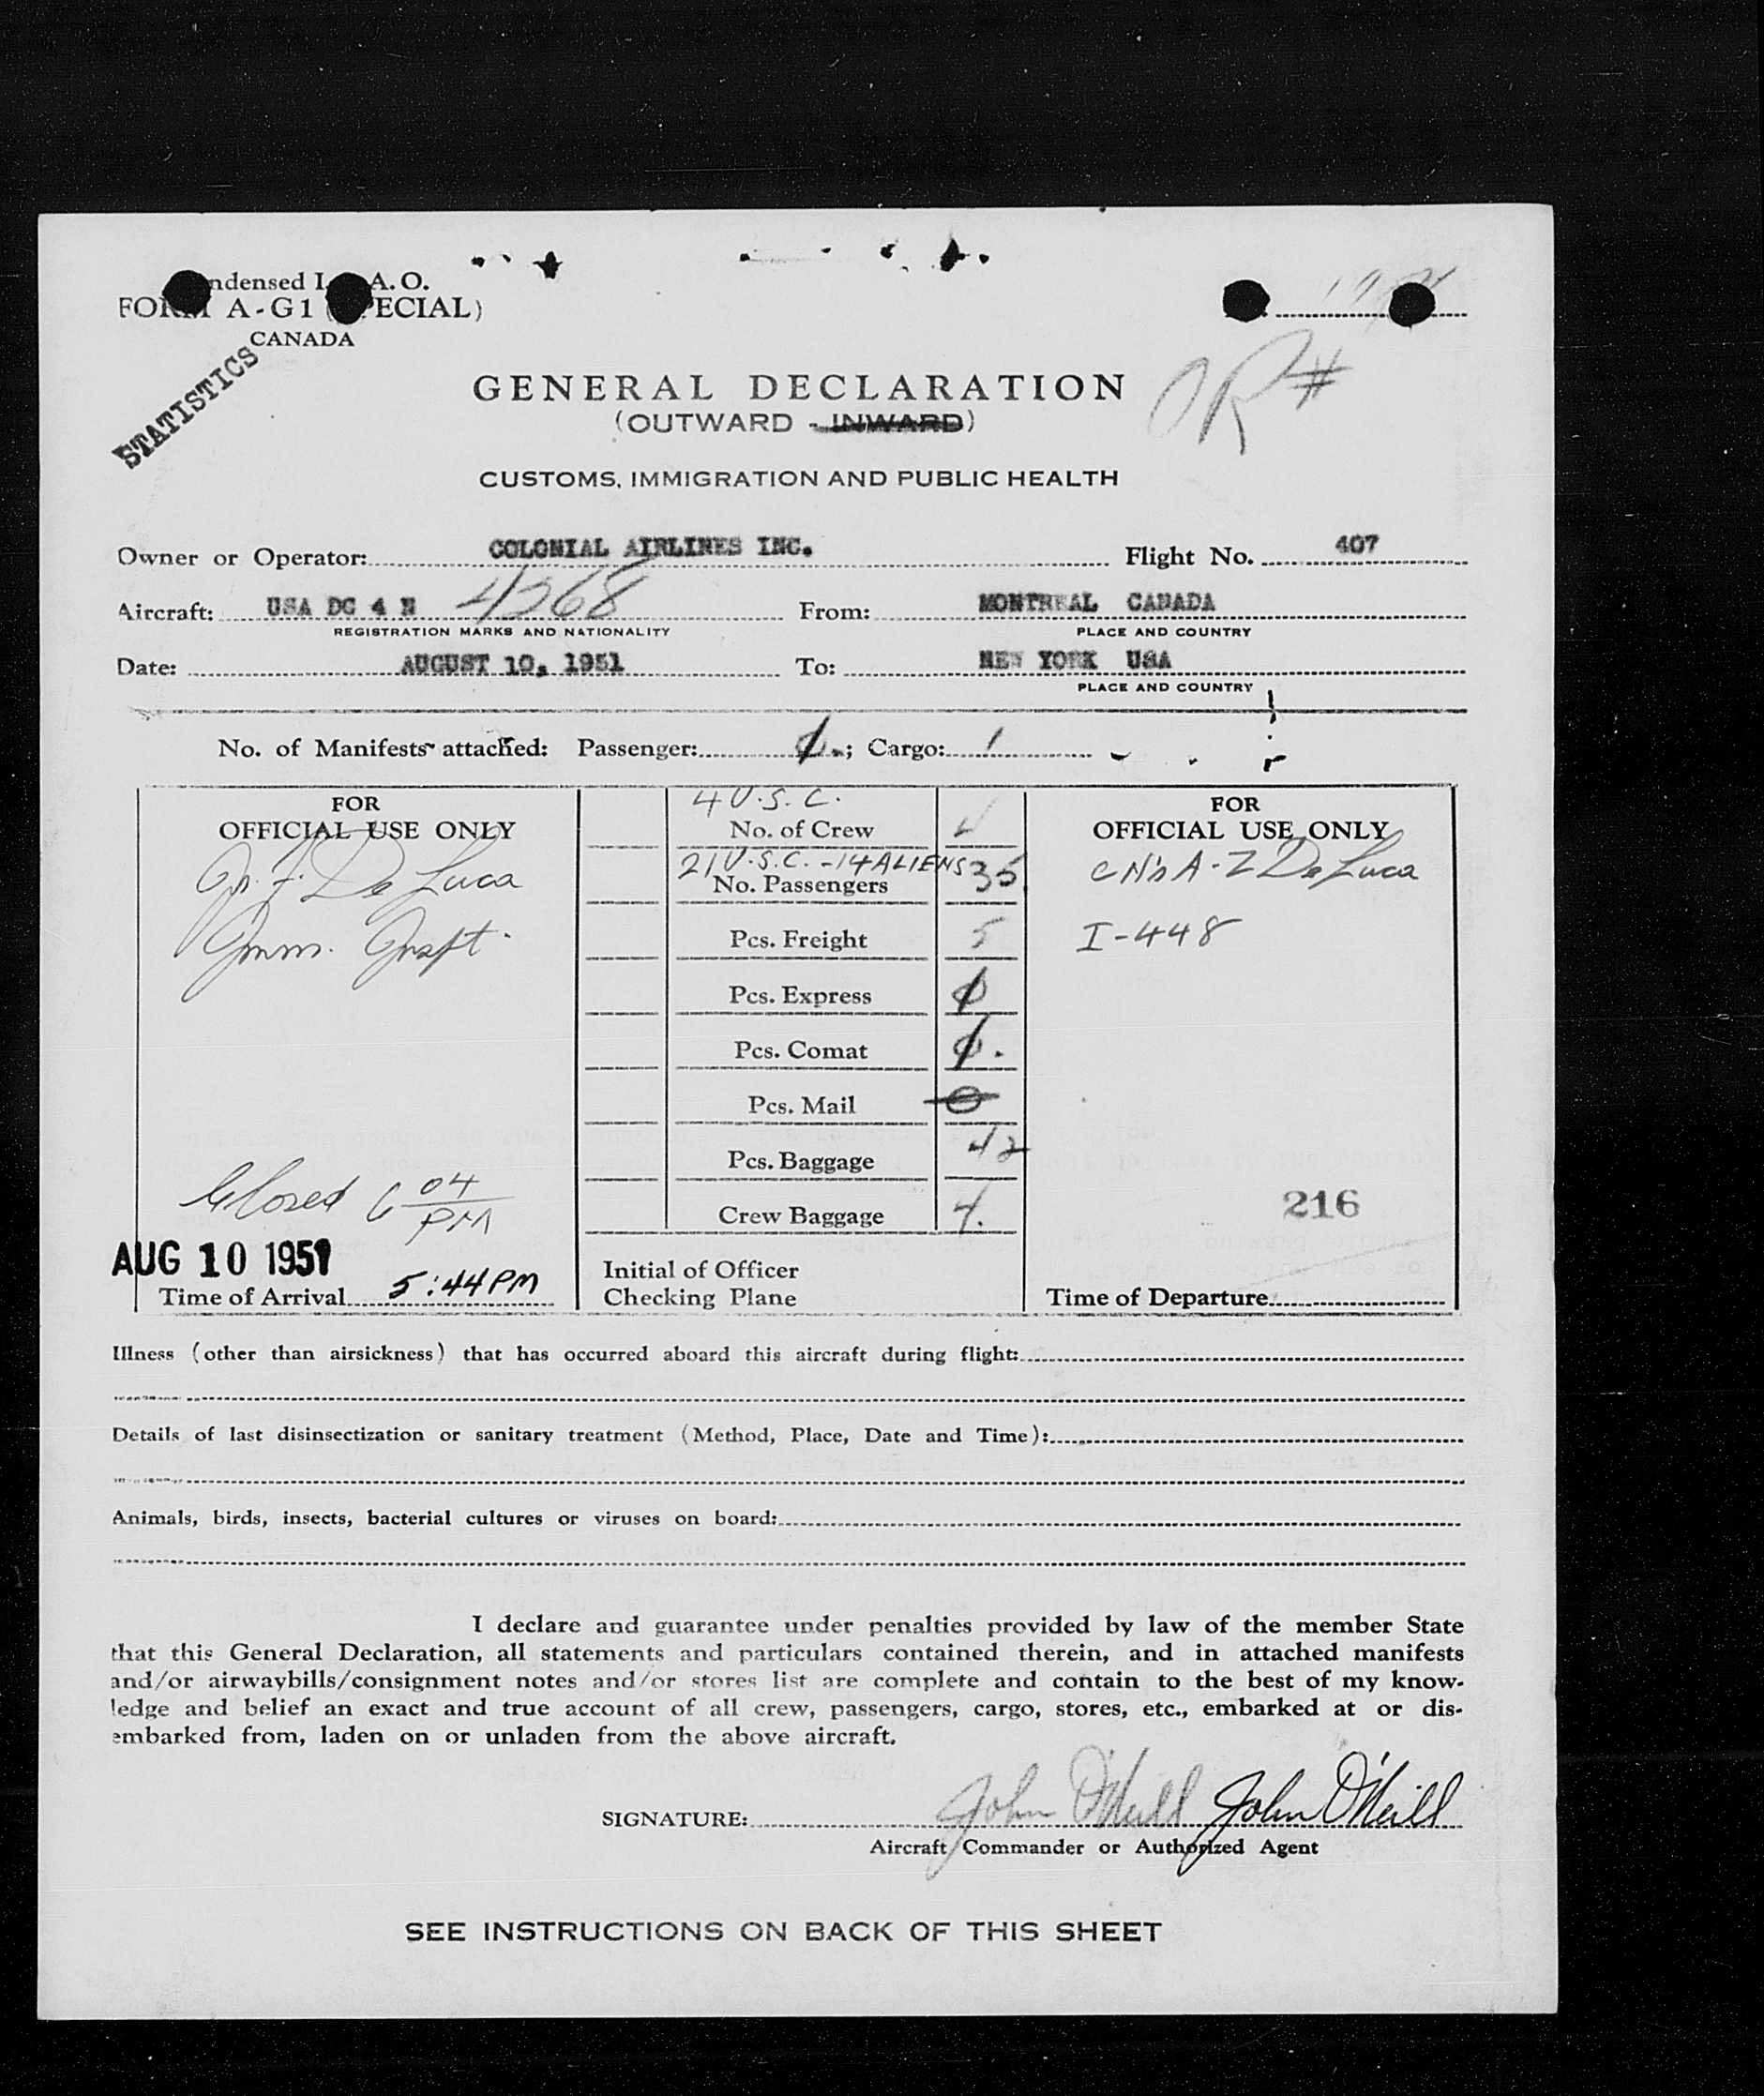 ndensed I. A. O.
FORM A-G1 (SPECIAL)
CANADA
STATISTICS
GENERAL DECLARATION
(OUTWARD - INWARD)
CUSTOMS, IMMIGRATION AND PUBLIC HEALTH
Owner or Operator: COLONIAL AIRLINES INC. Flight No. 407
Aircraft: USA DC 4 N 4268 From: MONTREAL CANADA
REGISTRATION MARKS AND NATIONALITY PLACE AND COUNTRY
Date: AUGUST 10, 1951 To: NEW YORK USA
PLACE AND COUNTRY
No. of Manifests attached: Passenger: 0; Cargo: 1
FOR
OFFICIAL USE ONLY
De Luca
Imm. Inspt.
Closed 6 04 PM
AUG 10 1951
Time of Arrival 5:44 PM
4 U.S.C.
No. of Crew
21 U.S.C. - 14 ALIENS 35
No. Passengers
Pcs. Freight 5
Pcs. Express 0
Pcs. Comat 0.
Pcs. Mail 0
Pcs. Baggage 42
Crew Baggage 4.
Initial of Officer
Checking Plane
FOR
OFFICIAL USE ONLY
A-Z De Luca
I-448
216
Time of Departure
Illness (other than airsickness) that has occurred aboard this aircraft during flight:
Details of last disinsectization or sanitary treatment (Method, Place, Date and Time):
Animals, birds, insects, bacterial cultures or viruses on board:
I declare and guarantee under penalties provided by law of the member State
that this General Declaration, all statements and particulars contained therein, and in attached manifests
and/or airwaybills/consignment notes and/or stores list are complete and contain to the best of my know-
ledge and belief an exact and true account of all crew, passengers, cargo, stores, etc., embarked at or dis-
embarked from, laden on or unladen from the above aircraft.
SIGNATURE: John O'Neill John O'Neill
Aircraft Commander or Authorized Agent
SEE INSTRUCTIONS ON BACK OF THIS SHEET